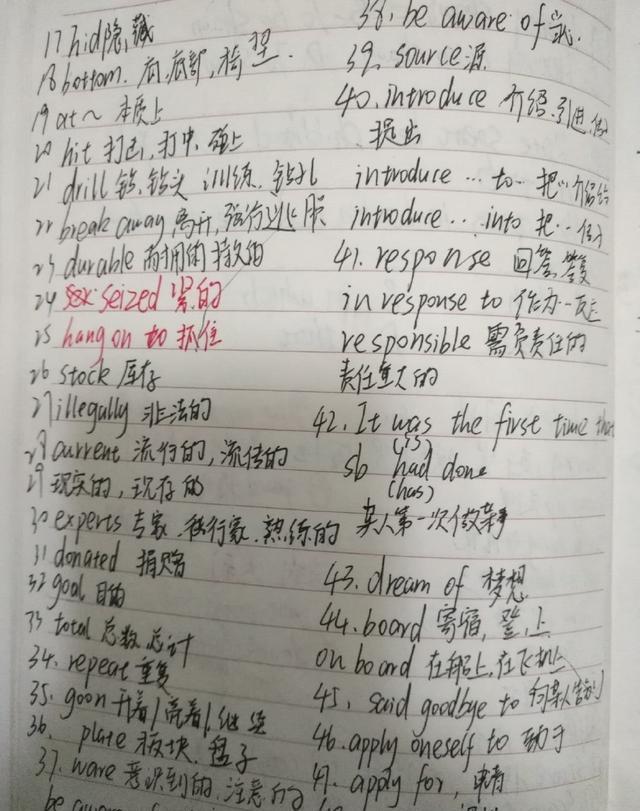 17 hid 隐, 藏
18 bottom. 底, 底部,
19 at ~ 本质上
20 hit 打击, 打中, 碰上
21 drill 钻, 钻头 训练, 钻孔
22 break away, 离开, 强行逃脱
23 durable 耐用的 持久的
24 seized 紧的
25 hang on to 抓住
26 stock 库存
27 illegally 非法的
28 current 流行的, 流传的
29 现实的, 现存的
30 experts 专家. 熟练的
31 donated 捐赠
32 goal 目的
33 total 总数 总计
34. repeat 重复
35. go on 开着/亮着/继续
36. plate 板块. 盘子
37. ware 意识到的, 注意的
be aware
38. be aware of
39. source 源
40. introduce 介绍. 引进,
提出
introduce … to … 把…介绍给
introduce … into 把…
41. response 回答, 答复
in response to 作为…
responsible 需负责任的
责任重大的
42. It was the first time that
(is)
sb had done
(has)
某人第一次做某事
43. dream of 梦想
44. board 寄宿, 登, 上
on board 在船上, 在飞机上
45. said goodbye to 向某人告别
46. apply oneself to 致力于
47. apply for, 申请